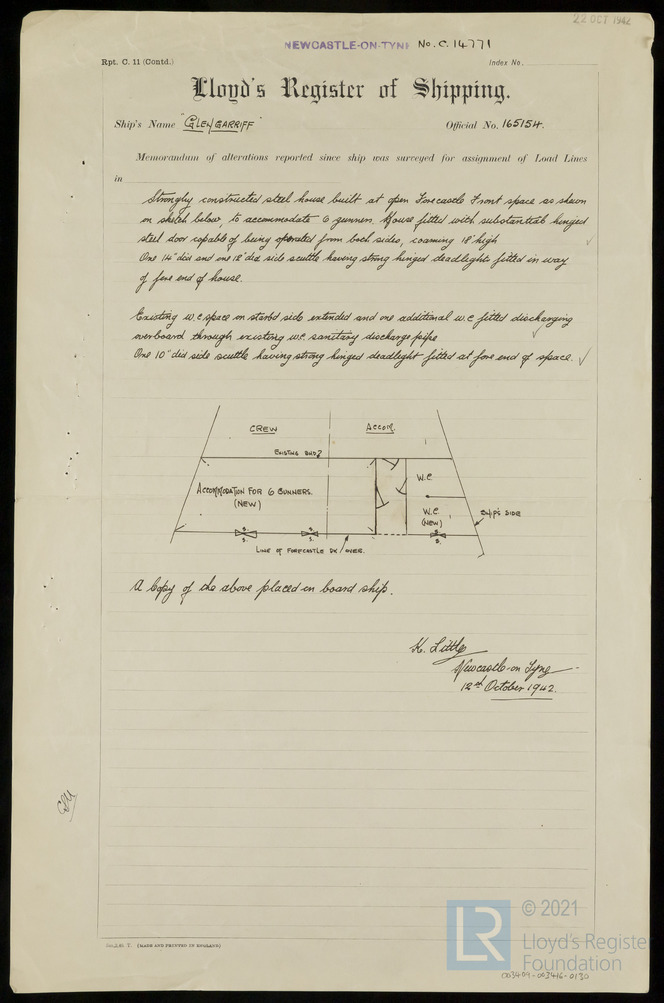 22 OCT 1942
NEWCASTLE-ON-TYNE No. C. 14771
Rpt. C. 11 (Contd.)
Index No.
Lloyd's Register of Shipping.
Ship's Name "GLENGARRIFF"
Official No. 165154.
Memorandum of alterations reported since ship was surveyed for assignment of Load Lines
in
Strongly constructed steel house built at open Forecastle Front space as shewn
on sketch below, to accommodate 6 gunners. House fitted with substantial hinged
steel door capable of being operated from both sides, coaming 18" high
One 14" dia and one 12" dia side scuttle having strong hinged deadlight fitted in way
of fore end of house.
Existing w.c space on starbd side extended and one additional w.c fitted discharging
overboard through existing w.c. sanitary discharge pipe
One 10" dia side scuttle having strong hinged deadlight fitted at fore end of space.
CREW
ACCOM.
EXISTING BHD.
W.C
ACCOMMODATION FOR 6 GUNNERS.
(NEW)
W.C.
(NEW)
SHIP'S SIDE
S. S. S.
S. S. S.
LINE OF FORECASTLE DK OVER.
A Copy of the above placed on board ship.
K. Little
Newcastle-on-Tyne
12th October 1942.
(MADE AND PRINTED IN ENGLAND)
LR
© 2021
Lloyd's Register
Foundation
003409-003416-0130